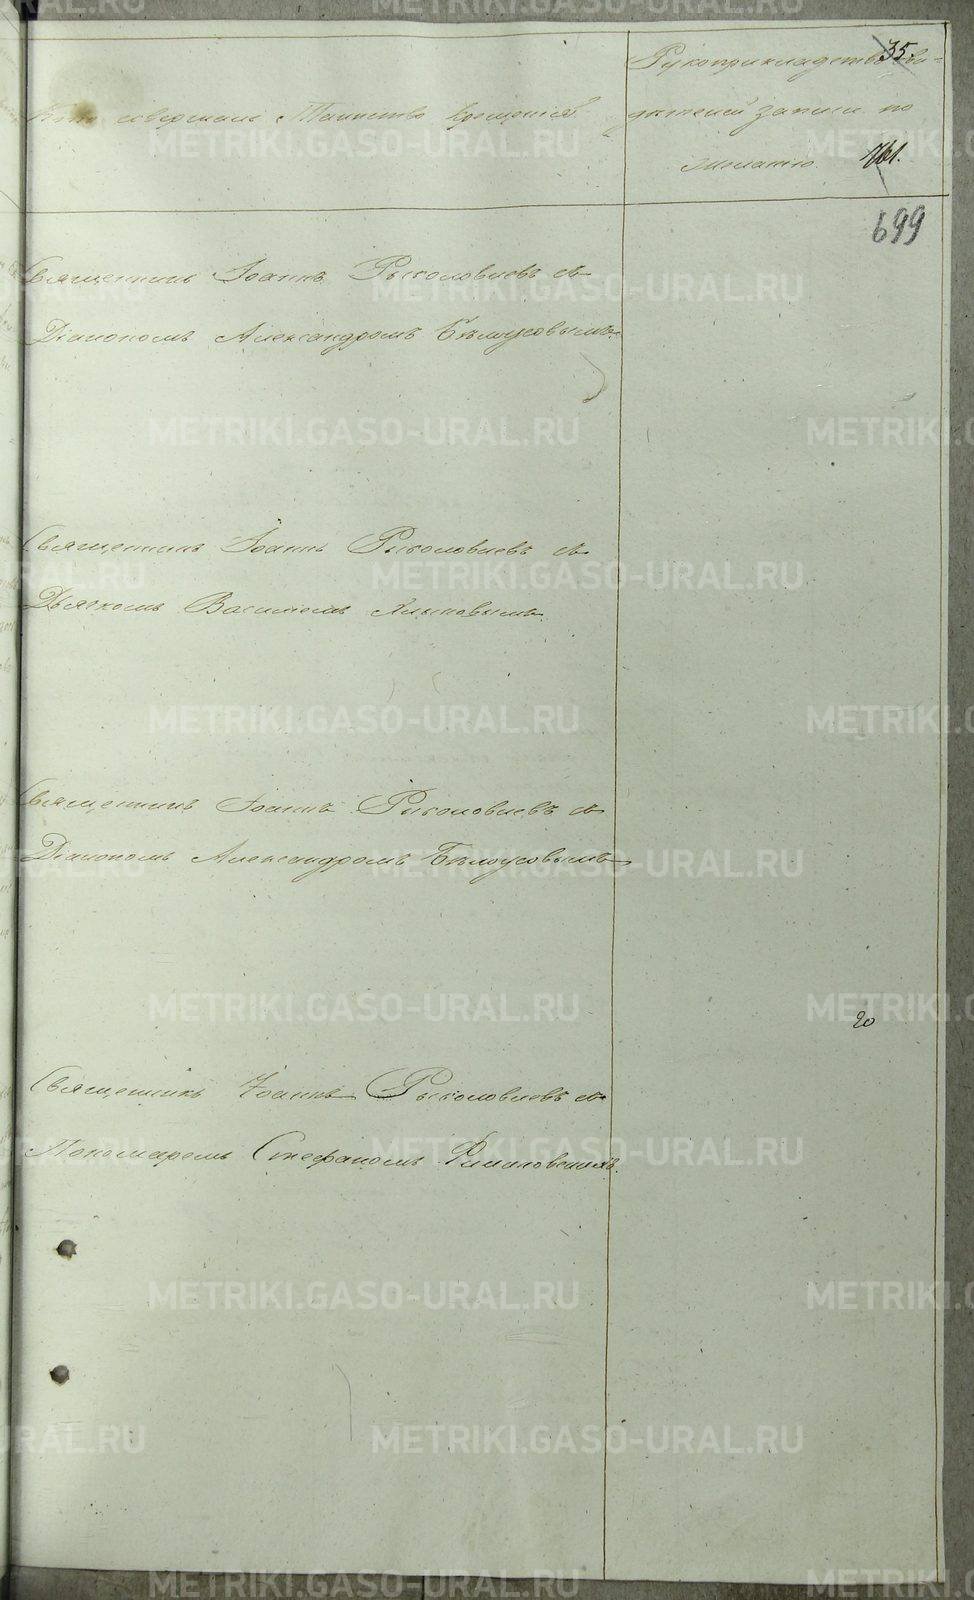 35.
Рукоприкладство сви-
Кто совершалъ Таинство крещенія?
дѣтелей записи по
желанію.
761.
699
Священникъ Іоаннъ Рыколовлевъ съ
Діакономъ Александромъ Бѣлоусовымъ.
Священникъ Іоаннъ Рыколовлевъ съ
Дьячкомъ Василіемъ Хлыновымъ.
Священникъ Іоаннъ Рыколовлевъ съ
Діакономъ Александромъ Бѣлоусовымъ
20
Священникъ Іоаннъ Рыколовлевъ съ
Пономаремъ Стефаномъ
METRIKI.GASO-URAL.RU